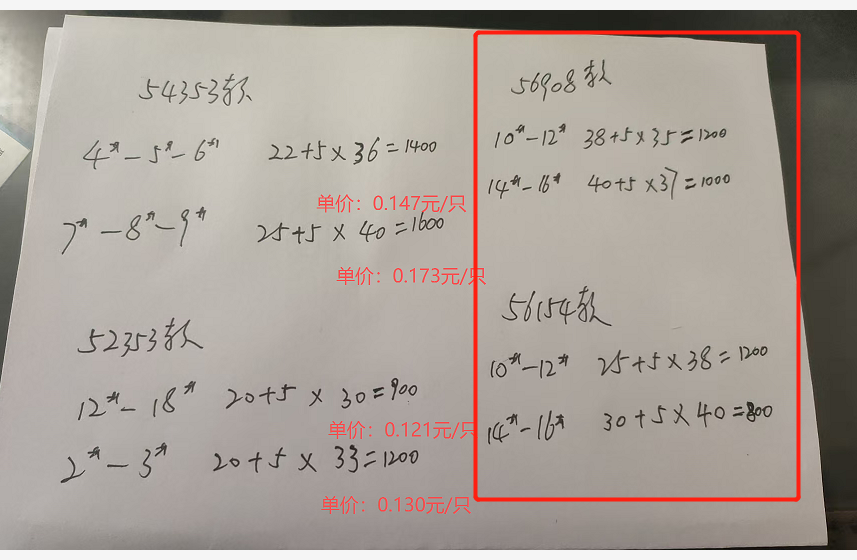 54353款
4#-5#-6# 22+5×36=1400
单价：0.147元/只
7#-8#-9# 25+5×40=1600
单价：0.173元/只
52353款
12#-18# 20+5×30=900
单价：0.121元/只
2#-3# 20+5×33=1200
单价：0.130元/只
56908款
10#-12# 38+5×35=1200
14#-16# 40+5×37=1000
56154款
10#-12# 25+5×38=1200
14#-16# 30+5×40=800